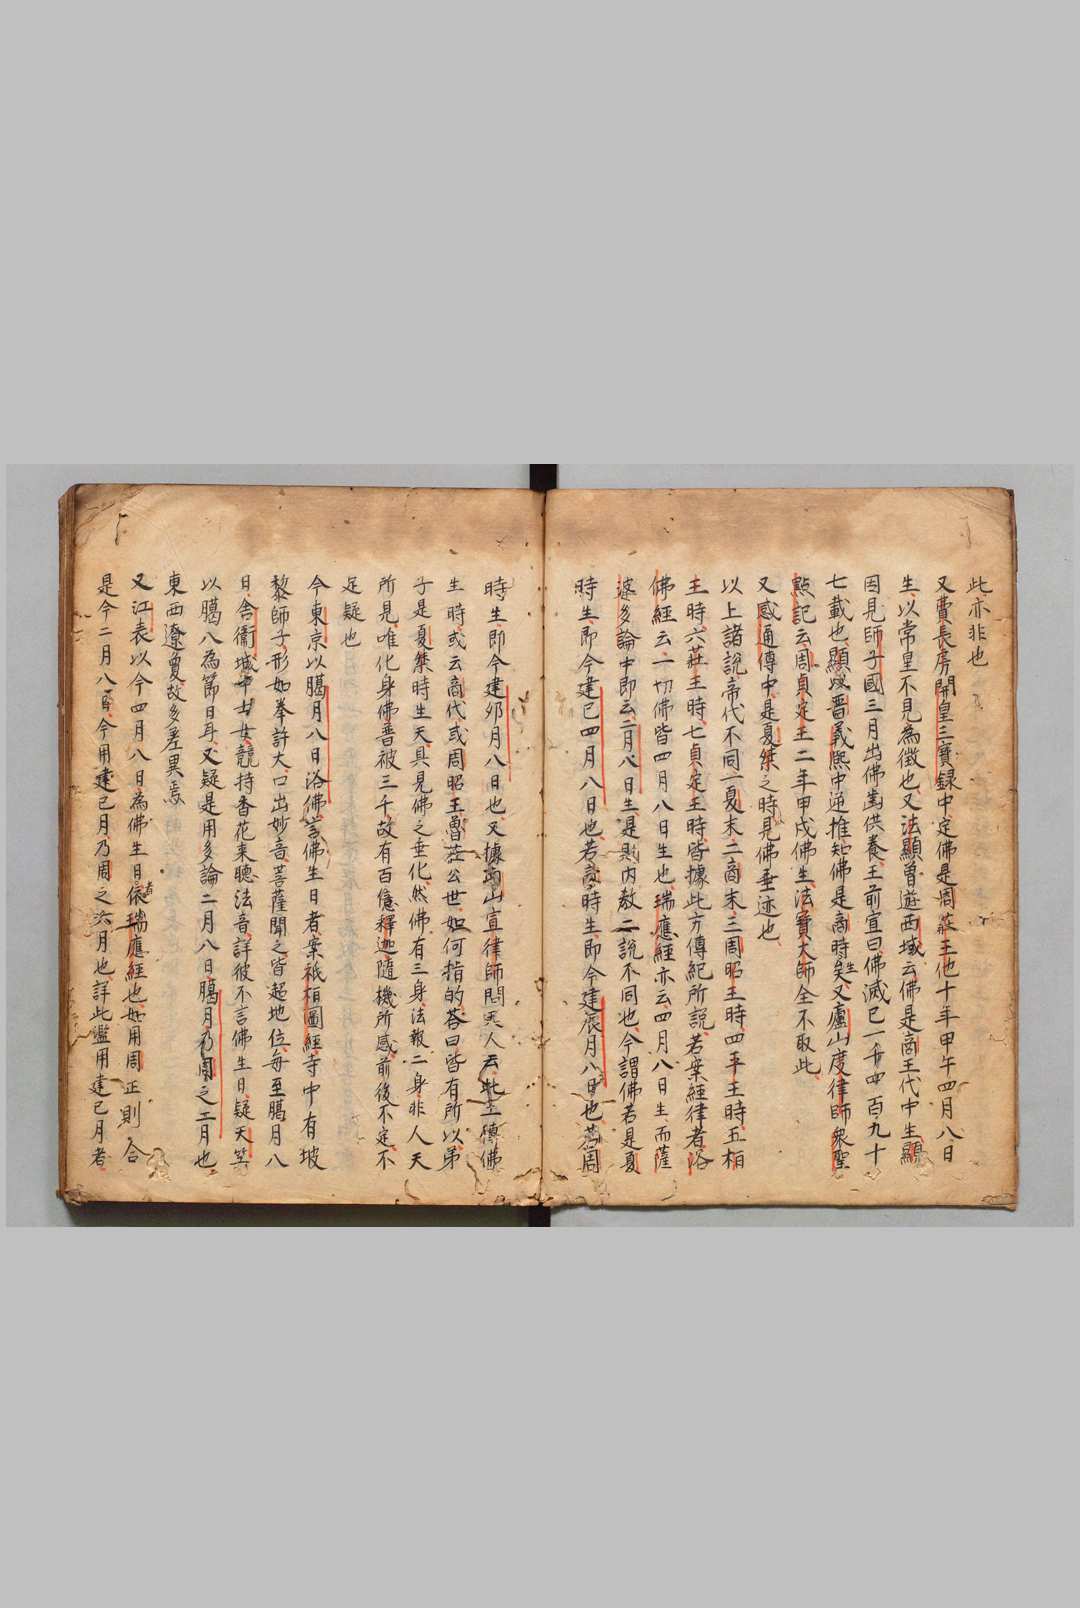 此亦非也
又費長房開皇三寶録中定佛是周莊王他十年甲午四月八日
生以常皇不見為徴也又法顯曽遊西域云佛是商王代中生顯
因見師子國三月出佛齒供養王前宣曰佛滅已一千四百九十
七載也顯以晋義熈中逆推知佛是商時生矣又廬山度律師衆聖
點記云周貞定王二年甲戌佛生法寶大師全不取此
又感通傳中是夏桀之時見佛垂迹也
以上諸説帝代不同一夏末二商末三周昭王時四平王時五桓
王時六莊王時七貞定王時皆據此方傳紀所説若案經律者浴
佛經云一切佛皆四月八日生也瑞應經亦云四月八日生而薩
婆多論中即云二月八日生是則内教二説不同也今謂佛若是夏
時生即今建巳四月八日也若商時生即今建辰月八日也若周
時生即今建夘月八日也又據南山宣律師問天人云此土傳佛
生時或云商代或周昭王魯莊公世如何指的荅曰皆有所以弟
子是夏桀時生天具見佛之垂化然佛有三身法報二身非人天
所見唯化身佛普被三千故有百億釋迦随機所感前後不定不
足疑也
今東京以臈月八日浴佛言佛生日者案祇桓圖經寺中有坡
黎師子形如拳許大口出妙音菩薩聞之皆超地位毎至臈月八
日舎衞城中士女競持香花来聴法音詳彼不言佛生日疑天竺
以臈八為節日耳又疑是用多論二月八日臈月乃周之二月也
東西遼夐故多差異焉
又江表以今四月八日為佛生日者依瑞應經也如用周正則合
是今二月八日今用建巳月乃周之六月也詳此濫用建巳月者